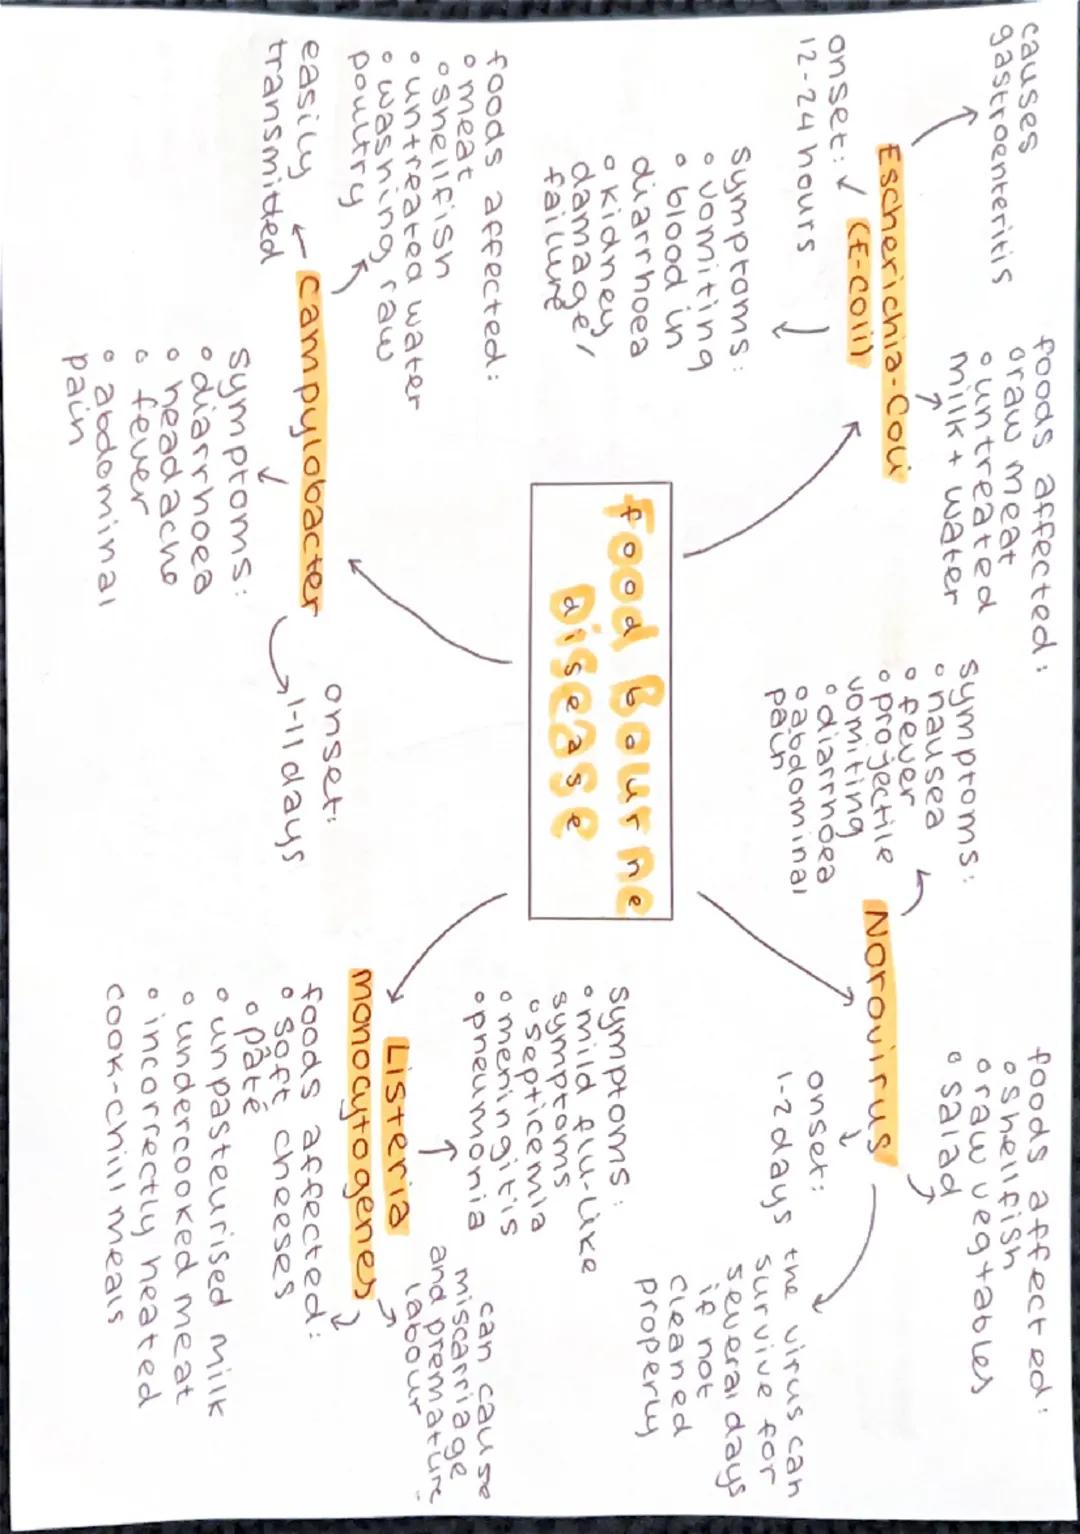 causes
gastroenteritis
Escherichia-Coli
(E-coli)
onset:
12-24 hours
foods affected:
o raw meat
o untreated
milk + water
symptoms:
o vomiting
o blood in
diarrhoea
o kidney
damage/
failure
symptoms:
o nausea
o fever
o projectile
vomiting
o diarrhoea
o abdominal
pain
Norovirus
foods affected:
o shellfish
o raw vegtables
o salad
onset:
1-2 days
the virus can
survive for
several days
if not
cleaned
properly
food Bourne
Disease
foods affected:
o meat
o shellfish
o untreated water
o washing raw
poultry
easily
transmitted
campylobacter
symptoms:
o diarrhoea
o headache
o fever
o abdominal
pain
onset:
1-11 days
symptons:
o mild flu-like
symptoms
o septicemia
o meningitis
o pneumonia
Listeria
monocytogenes
can cause
miscarriage
and premature
labour
foods affected:
o soft cheeses
o pâté
o unpasteurised milk
o undercooked meat
o incorrectly heated
cook-chill meals